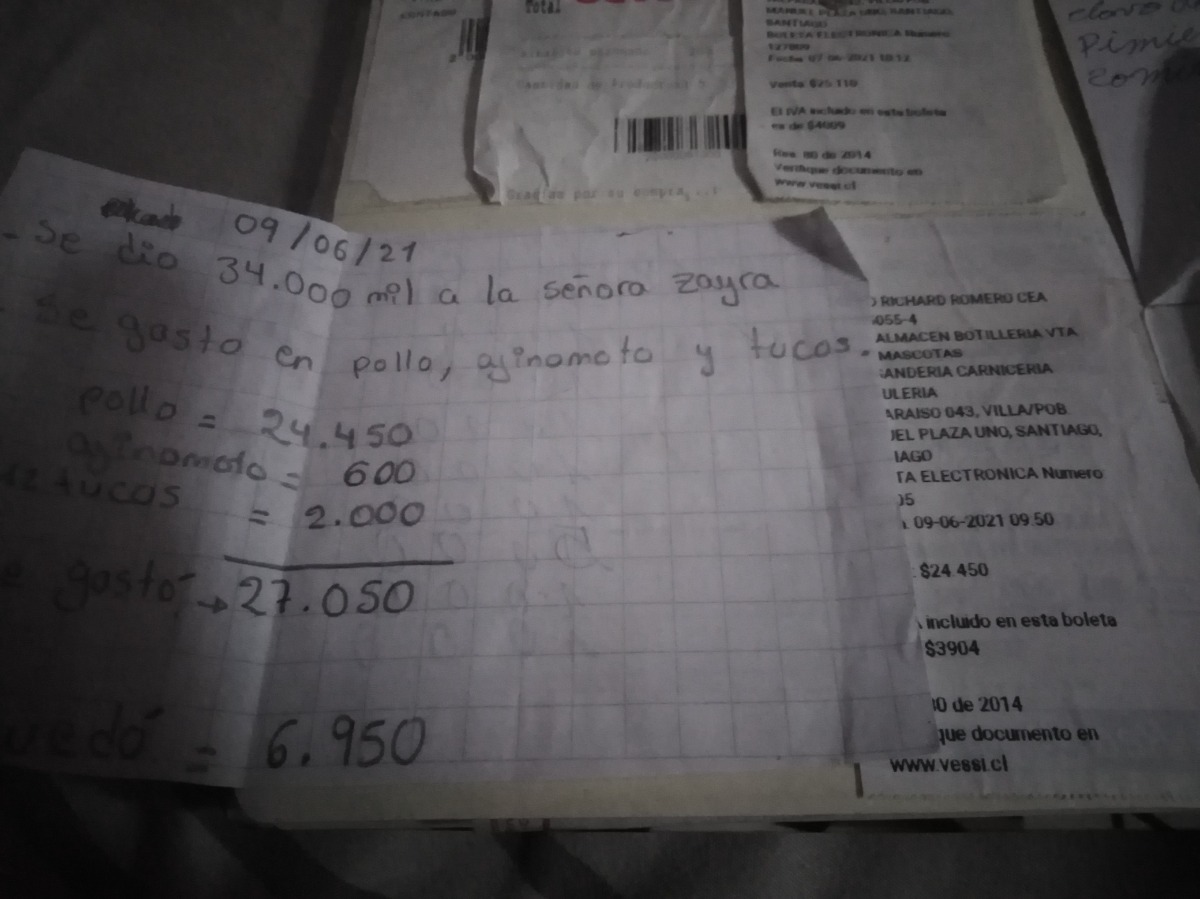 Total
MANUEL PLAZA UNO, SANTIAGO,
SANTIAGO
BOLETA ELECTRONICA Numero
127809
Fecha 07-06-2021 10:12
Venta $25.110
El IVA incluido en esta boleta
es de $4009
Res. 80 de 2014
Verifique documento en
www.vessi.cl
Gracias por su compra
09/06/21
- Se dio 34.000 mil a la señora zayra
- Se gasto en pollo, ajinomoto y tucos.
pollo = 24.450
ajinomoto = 600
12 tucos = 2.000
e gastó → 27.050
uedó = 6.950
RICHARD ROMERO CEA
055-4
ALMACEN BOTILLERIA VTA
MASCOTAS
ANDERIA CARNICERIA
ULERIA
ARAISO 043, VILLA/POB
EL PLAZA UNO, SANTIAGO,
IAGO
TA ELECTRONICA Numero
5
09-06-2021 09.50
: $24.450
incluido en esta boleta
$3904
0 de 2014
que documento en
www.vessi.cl